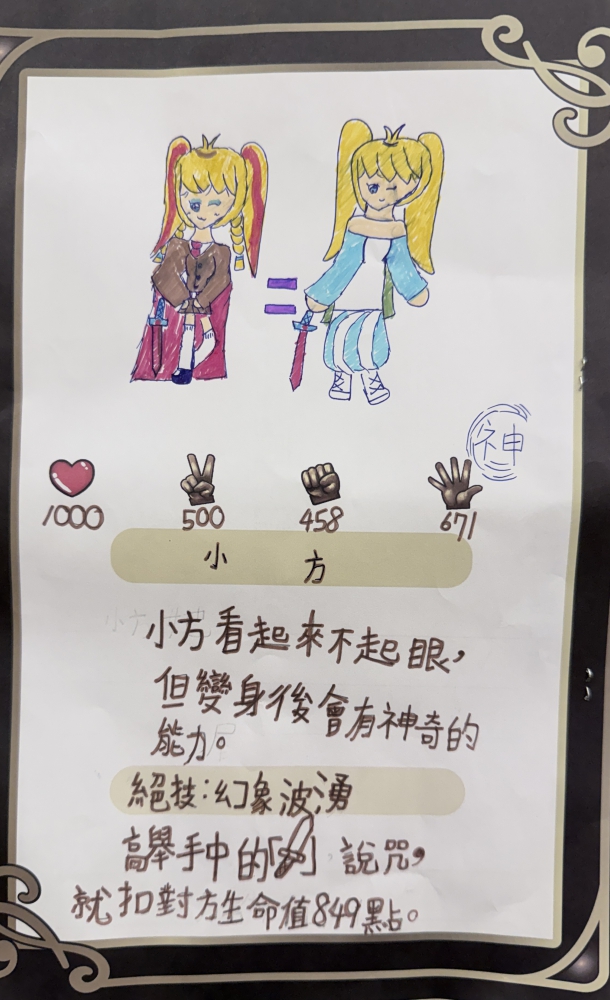 神
1000 500 458 671
小方
小方看起來不起眼,
但變身後會有神奇的
能力。
絕技:幻象波湧
高舉手中的「」說咒,
就扣對方生命值849點。